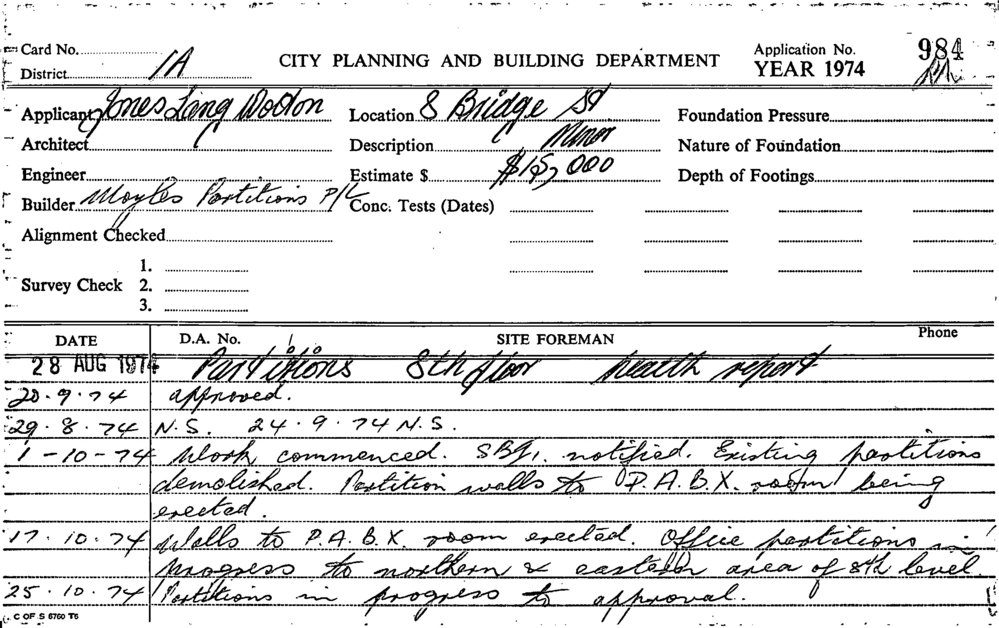 Card No.
District 1A
CITY PLANNING AND BUILDING DEPARTMENT
Application No. 984
YEAR 1974
Applicant Jones Lang Wooton
Location 8 Bridge St
Foundation Pressure
Architect
Description Minor
Nature of Foundation
Engineer
Estimate $ $15,000
Depth of Footings
Builder Moyles Partitions P/L
Conc. Tests (Dates)
Alignment Checked
1.
Survey Check 2.
3.
DATE D.A. No. SITE FOREMAN Phone
28 AUG 1974 Partitions 8th floor health report
20.9.74 approved.
29.8.74 N.S. 24.9.74 N.S.
1-10-74 Work commenced. notified. Existing partitions
demolished. Partition walls to P.A.B.X. room being
erected.
17.10.74 Walls to P.A.B.X. room erected. Office partitions in
progress to northern & eastern area of 8th level.
25.10.74 Partitions in progress to approval.
C OF S 5760 T6